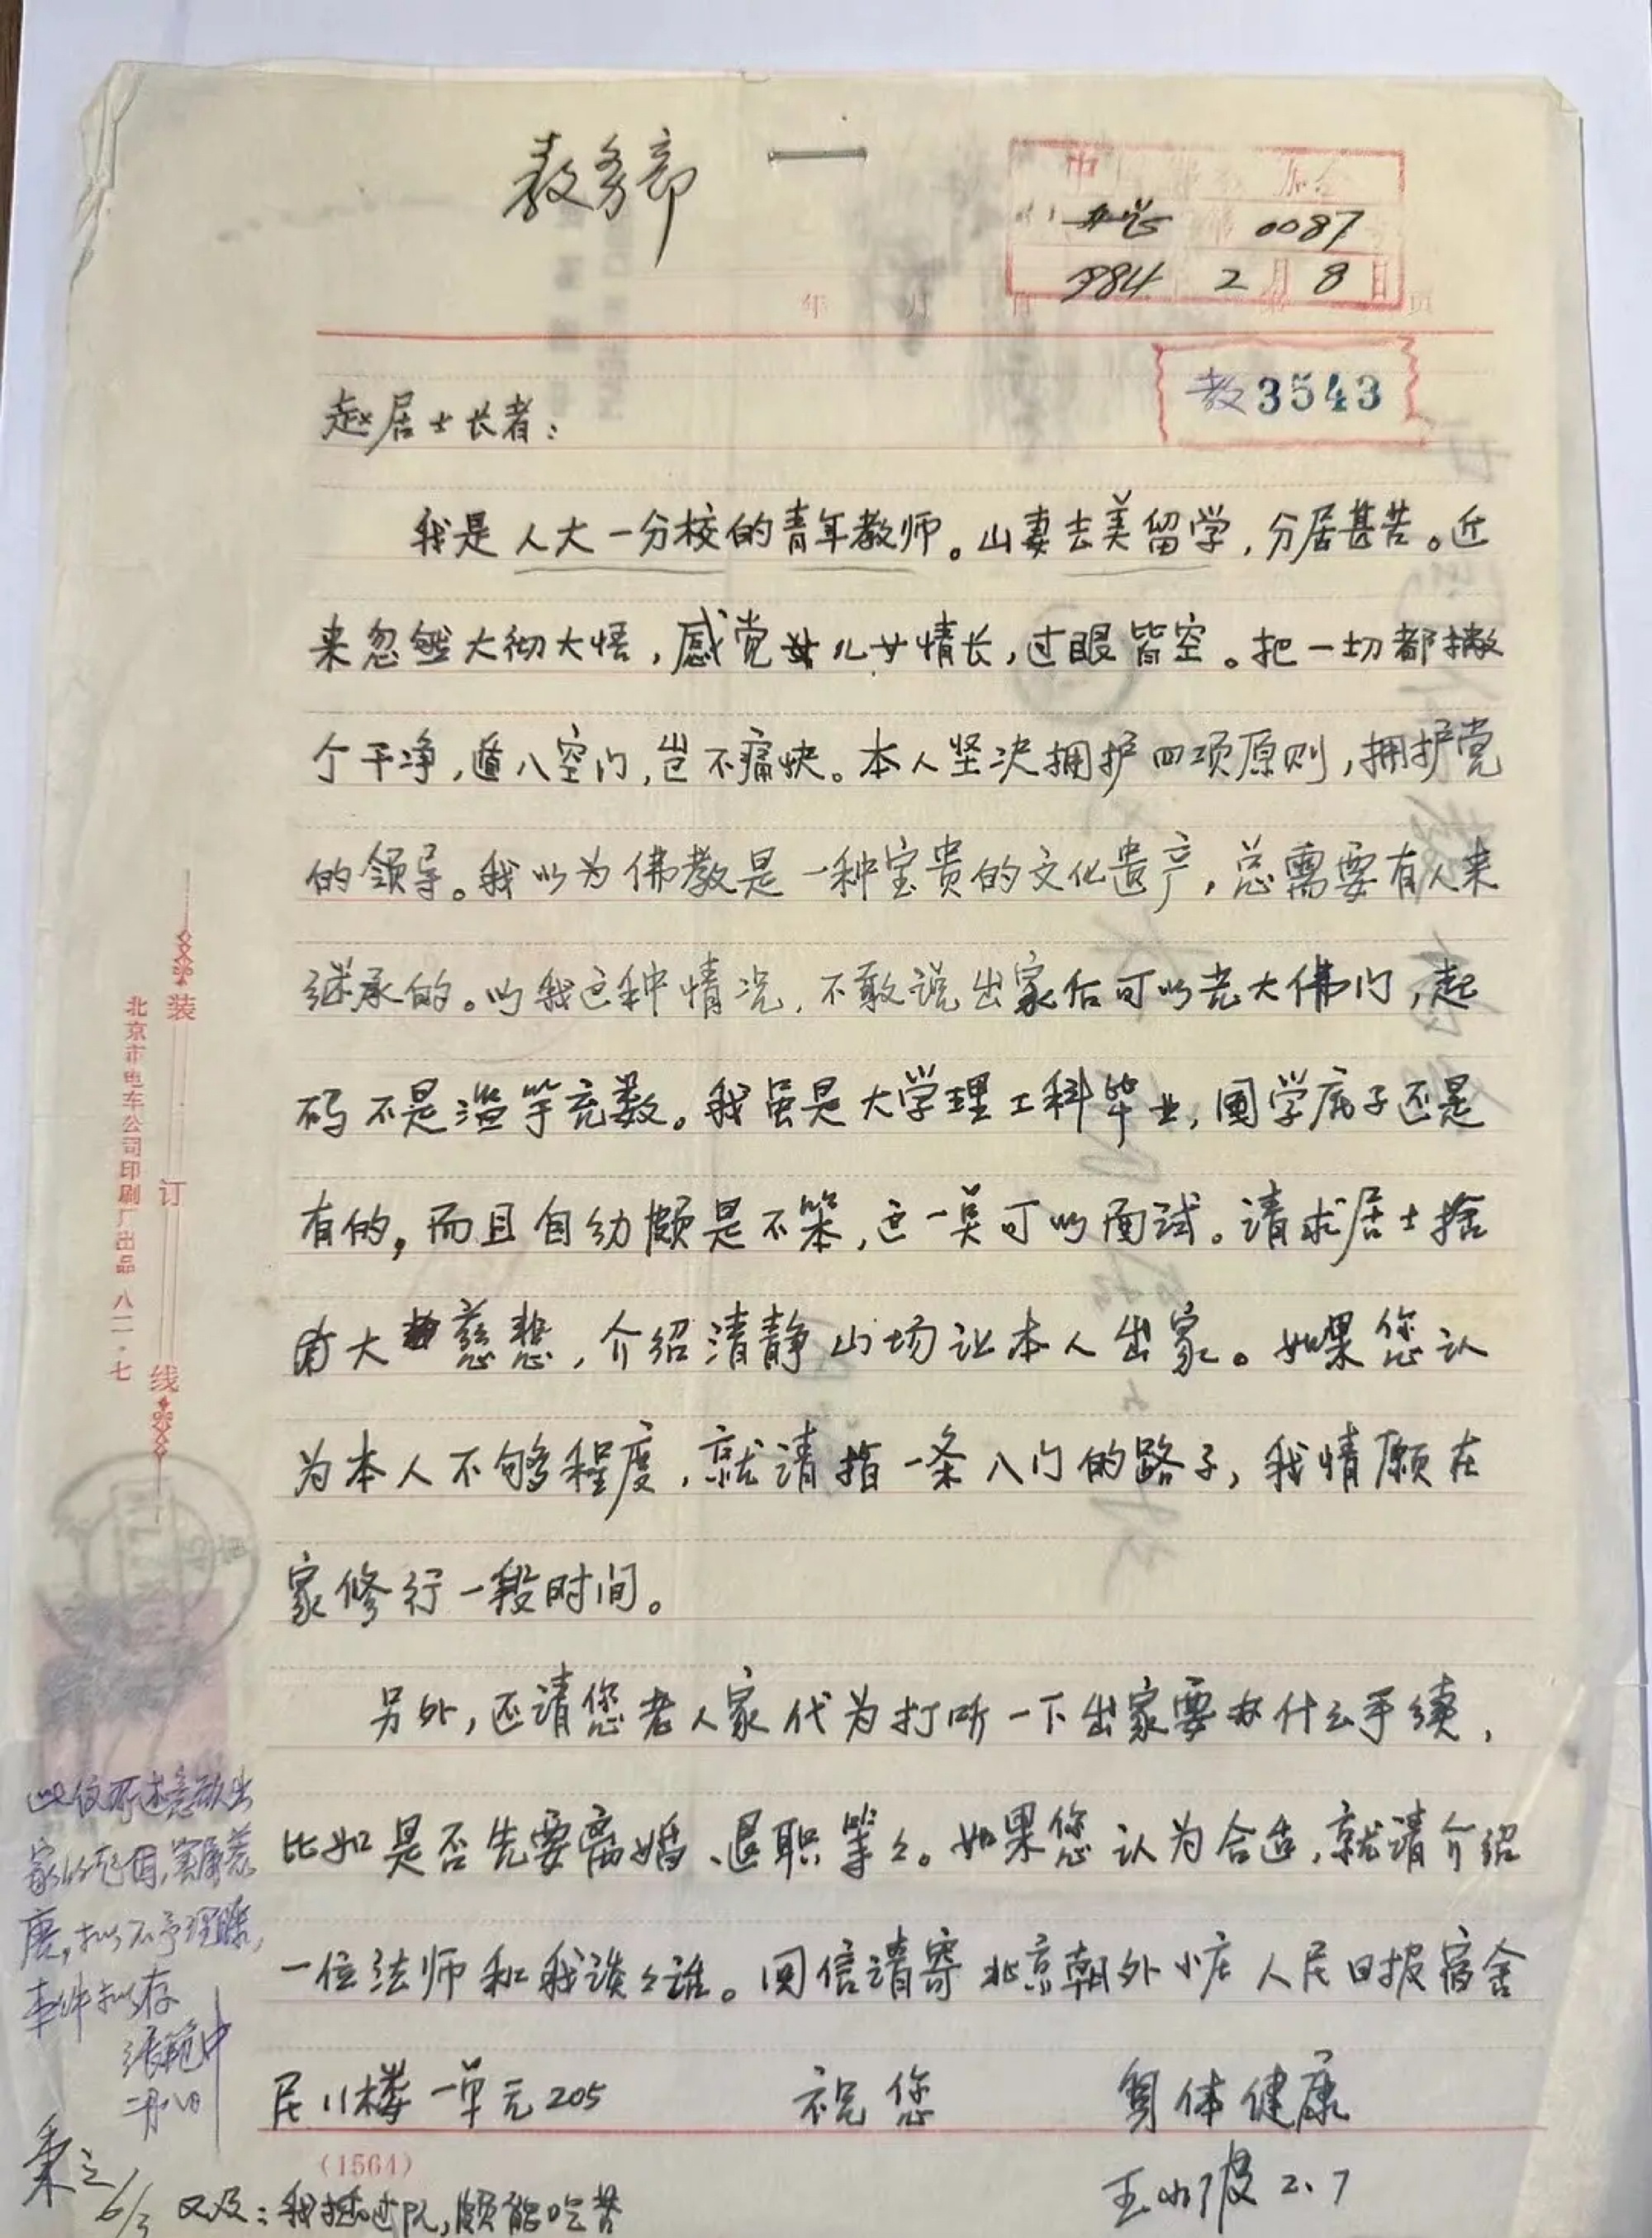 教务部
0087
1984 2月8日
年 月 日 页
教3543
赵居士长者：
我是人大一分校的青年教师。山妻去美留学，分居甚苦。近
来忽然大彻大悟，感觉儿女情长，过眼皆空。把一切都撇
个干净，遁入空门，岂不痛快。本人坚决拥护四项原则，拥护党
的领导。我以为佛教是一种宝贵的文化遗产，总需要有人来
继承的。以我这种情况，不敢说出家后可以光大佛门，起
码不是滥竽充数。我虽是大学理工科毕业，国学底子还是
有的，而且自幼颇是不笨，这一点可以面试。请求居士捨
大慈悲，介绍清静山场让本人出家。如果您认
为本人不够程度，就请指一条入门的路子，我情愿在
家修行一段时间。
另外，还请您老人家代为打听一下出家要办什么手续，
比如是否先要离婚、退职等々。如果您认为合适，就请介绍
一位法师和我谈々谁。回信请寄北京朝外小庄人民日报宿舍
民11楼一单元205 祝您 身体健康
王小波 2.7
(1564)
又及：我插过队，颇能吃苦
装订线
北京市电车公司印刷厂出品 八二·七
此仅所述意欲出
家的起因，实属荒
唐，拟不予理睬，
来件拟存
张
二月八日
6/3